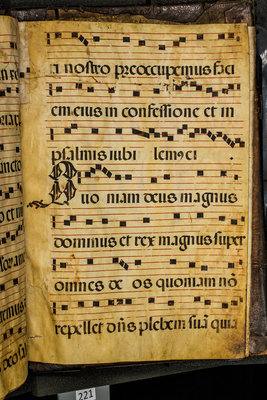 nostro preoccupemus faci
em eius in confessione et in
psalmis iubi lem⁹ ei
Quoniam deus magnus
dominus et rex magnus super
omnes de os quoniam nō
repellet dn̄s plebem suā quia
221